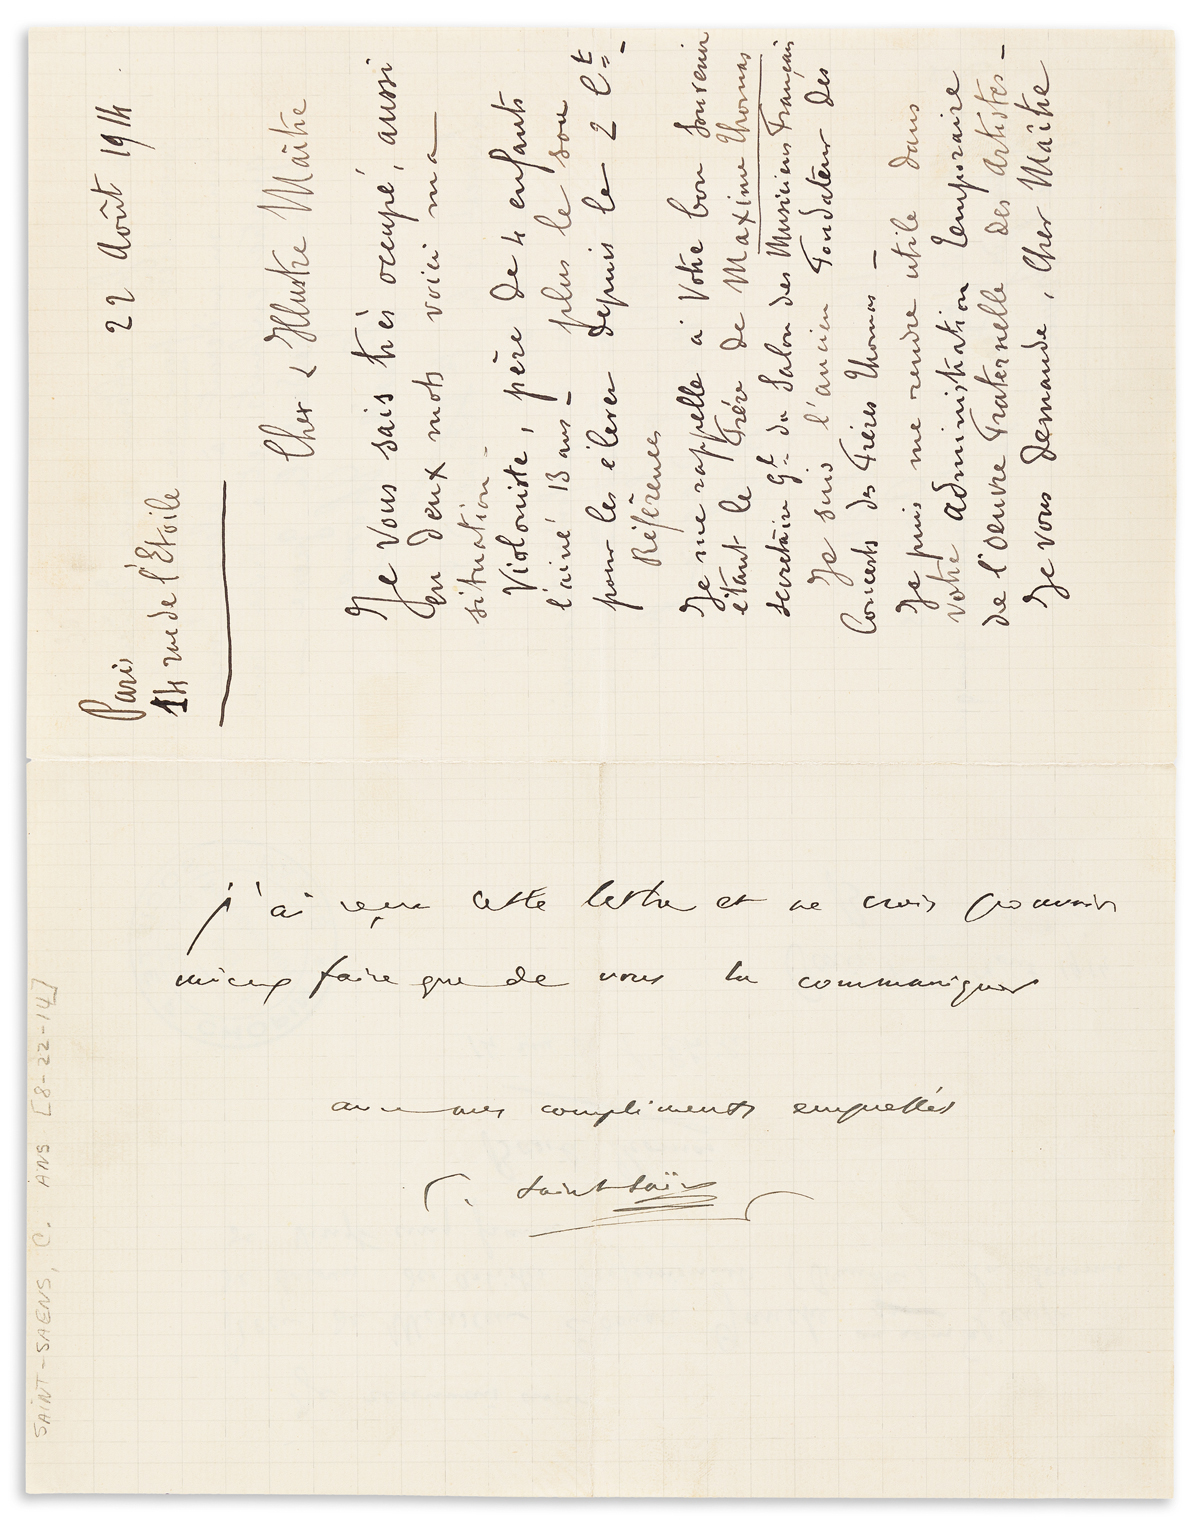 Paris
14 rue de l'Etoile
22 Août 1914
Cher & Illustre Maître
Je vous sais très occupé, aussi
en deux mots voici ma
situation -
Violoniste, père de 4 enfants
l'ainé 13 ans - plus le sou
pour les élever depuis le 2 Ct -
Références
Je me rappelle à Votre bon souvenir
étant le Frère de Maxime Thomas
secrétaire Gl du Salon des Musiciens Français
Je suis l'ancien Fondateur des
Concerts des Frères Thomas -
Je puis me rendre utile dans
votre administration temporaire
de l'Oeuvre Fraternelle des Artistes -
Je vous demande, Cher Maître
j'ai reçu cette lettre et ne crois pouvoir
mieux faire que de vous la communiquer
avec mes compliments empressés
C. Saint-Saëns
SAINT-SAENS, C. ANS [8-22-14]